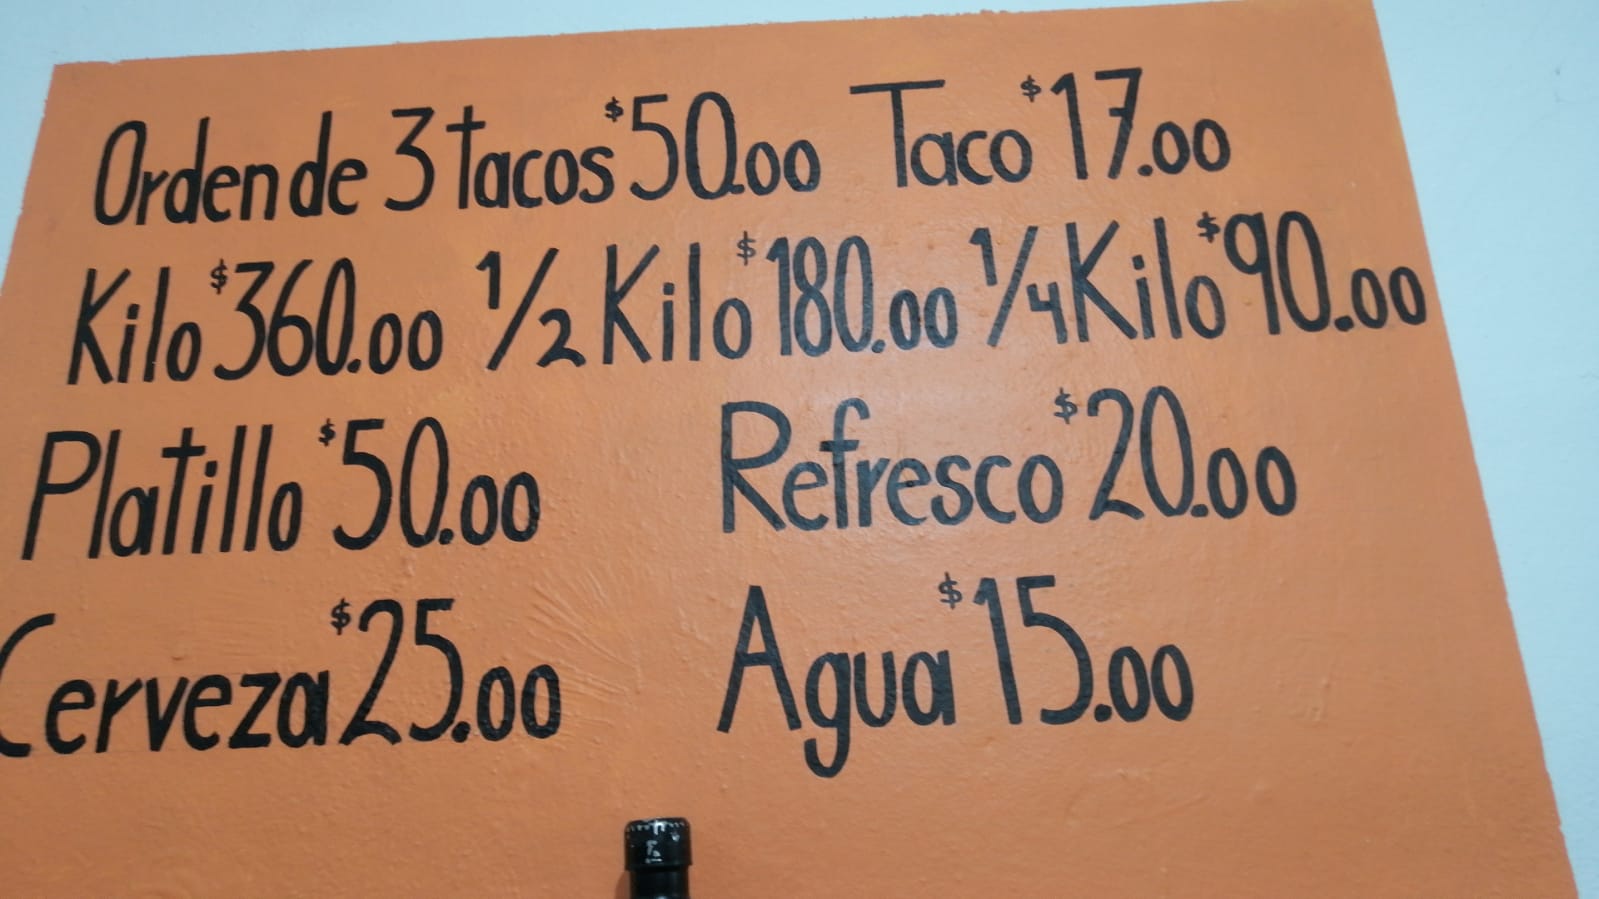 Orden de 3 tacos $50.00 Taco $17.00
Kilo $360.00 1/2 Kilo $180.00 1/4 Kilo $90.00
Platillo $50.00 Refresco $20.00
Cerveza $25.00 Agua $15.00